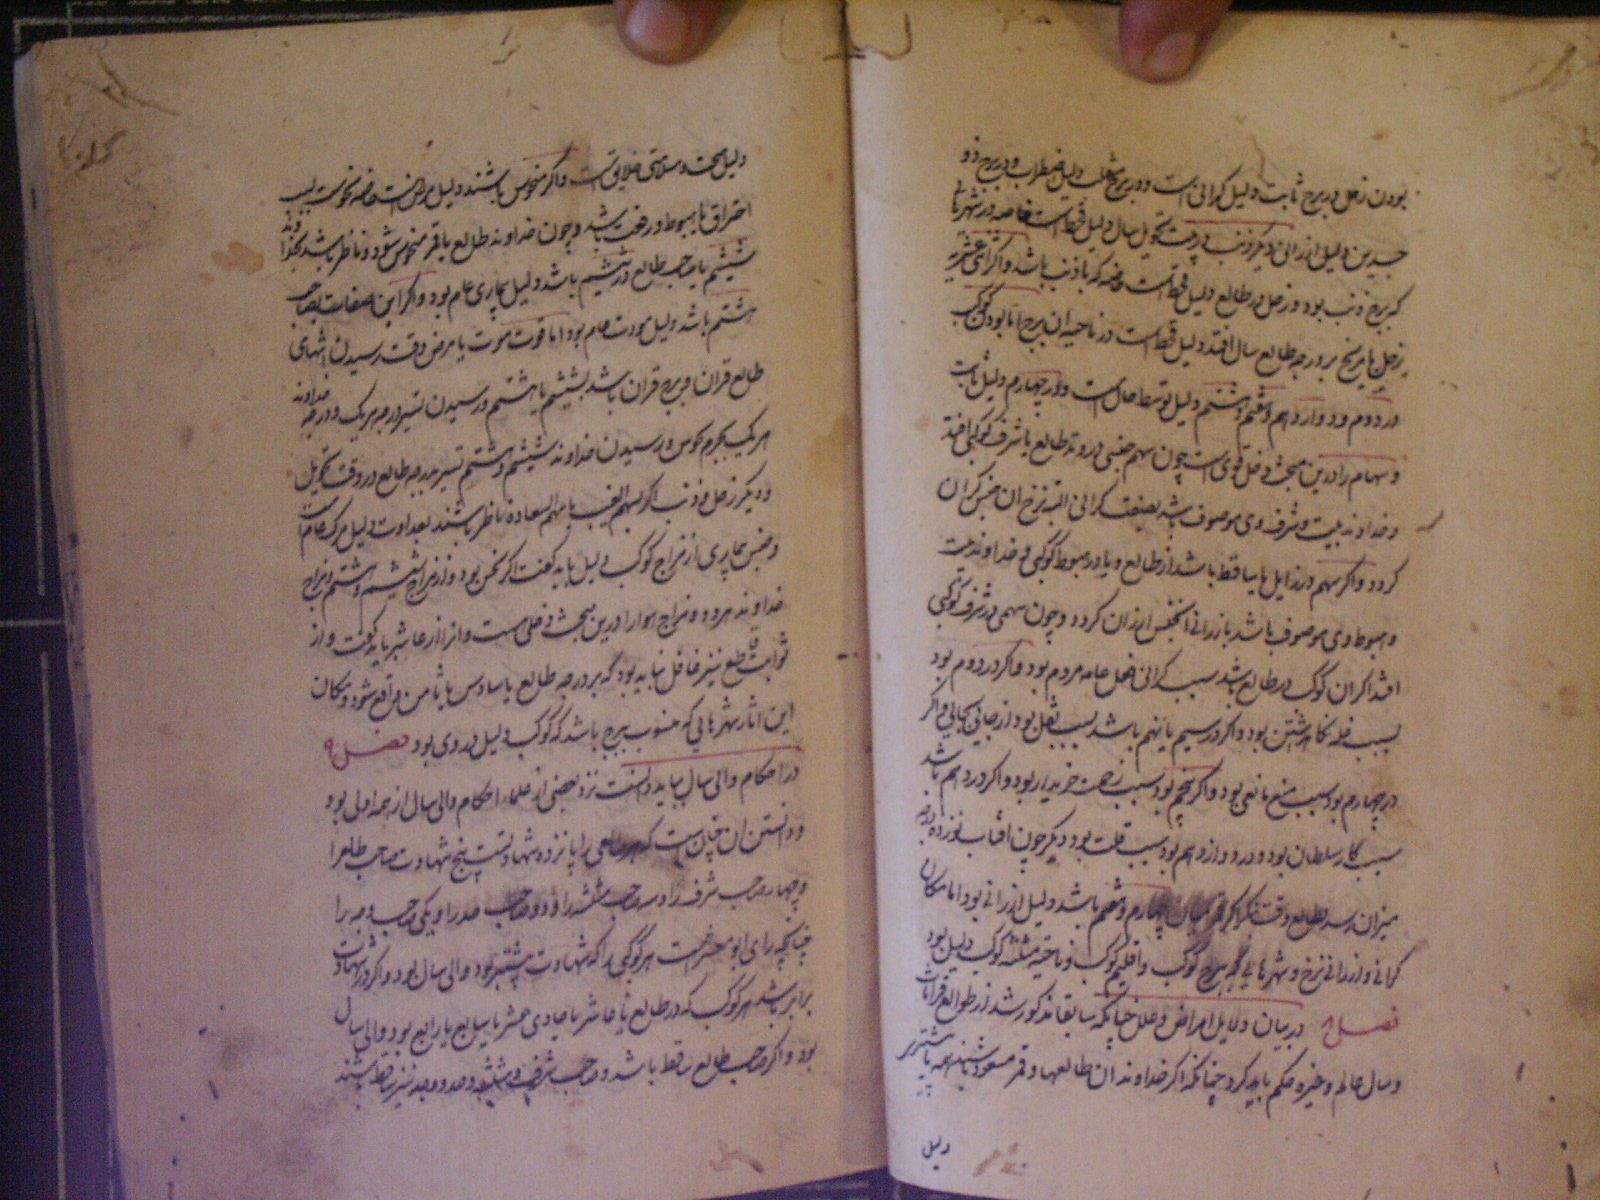 بودن زحل در برج ثابت دلیل کرانی است و در برج منقلب دلیل اضطراب و در برج ذو
جسدین دلیل ارزانی دیکر ذنب در بیت تحویل سال دلیل قحط است خاصه در شهرهای
که برج ذنب بود و زحل در طالع دلیل قحط است خاصه که با ذنب باشد و اکر
زحل یا مریخ بر درجه طالع سال افتد دلیل قحط است در ناحیه آن برج اما بودن کوکب
در دوم و دوازدهم و هفتم و هشتم دلیل توسط حال است و در چهارم دلیل ثبات
و سهام را درین مبحث دخل قوی است چون سهم جنسی در وتد طالع یا شرف کوکبی افتد
و خداوند بیت و شرف وی موصوف باشد بصفت کرانی البته نرخ ان جنس کران
کردد و اکر سهم در زایل یا ساقط باشد از طالع و یا در هبوط کوکبی و خداوند بیت
و هبوط وی موصوف باشد بارزانی آن جنس ارزان کردد و چون سهمی در شرف کوکبی
افتد اکر ان کوکب در طالع باشد سبب کرانی فعل عامه مردم بود و اکر در دوم بود
بسبب غله نکاه داشتن بود و اکر در سیم یا نهم باشد بسبب نقل بود از جایی بجایی و اکر
در چهارم بود سبب منع مانعی بود و اکر پنجم بود سبب زحمت خریدار بود و اکر در دهم باشد
سبب کار سلطان بود و در دوازدهم بود سبب قلت بود دیکر چون افتاب نوزده درجه
میزان رسد بطالع وقت نکر اکر قمر میان چهارم و هفتم باشد دلیل ارزانی بود اما مکان
کرانی و ارزانی نرخ و شهرهایی که برج کوکب و اقلیم کوکب و ناحیه مثلثه کوکب دلیل بود
فصل در بیان دلایل امراض و علل چنانکه سابقا مذکور شد از طوالع قرانات
و سال عالم و غیره حکم باید کرد چنانکه اکر خداوند ان طالعها و قمر مسعود باشند همه یا بیشتر
دلیل
دلیل صحت و سلامتی خلایق است و اکر منحوس باشند دلیل مرض است خاصه نحوست بسبب
احتراق یا هبوط و رجعت باشد و چون خداوند طالع یا قمر منحوس شود و ناظر باشد بخداوند
ششم یا صاحب طالع در ششم باشد دلیل بیماری عام بود و اکر این صفات بصاحب
هشتم باشد دلیل موت عام بود اما قوت موت یا مرض وقت رسیدن انتهای
طالع قران و برج قران باشد بششم یا هشتم و رسیدن تسییر درجه هر یک و درجه خداوند
هر یک بجرم نحوس و رسیدن خداوند ششم و هشتم تسییر بدرجه طالع در وقت تحویل
و دیکر زحل و ذنب اکر بسهم الغیب یا سهم السعادة ناظر باشند بعداوت دلیل مرک عام است
و جنس بیماری از مزاج کوکب دلیل باید کفت اکر نحس بود و از مزاج ششم و هشتم و مزاج
خداوند هر دو و مزاج هوا را درین مبحث دخلی است و انرا از عاشر باید کفت و از
ثوابت قاطع نیز غافل نباید بود که بر درجه طالع یا سادس یا ثامن واقع شود و مکان
این اثار شهرهایی که منسوب ببرج باشد که کوکب دلیل در وی بود فصل
در احکام والی سال بباید دانست نزد بعضی از علما احکام والی سال از همه اصل بود
و دانستن ان چنان است که هر طالعی را پانزده شهادتست پنج شهادت صاحب طالع را
و چهار صاحب شرف را و سه صاحب مثلثه را و دو صاحب حد را و یکی صاحب وجه را
چنانچه رای ابو معشر است هر کوکبی را که شهادت بیشتر بود والی سال بود و اکر در شهادت
برابر باشد هر کوکب که در طالع یا عاشر یا حادی عشر یا سابع یا رابع بود والی سال
بود و اکر صاحب طالع ساقط باشد و صاحب شرف و مثلثه و حد و وجه نیز ساقط باشند